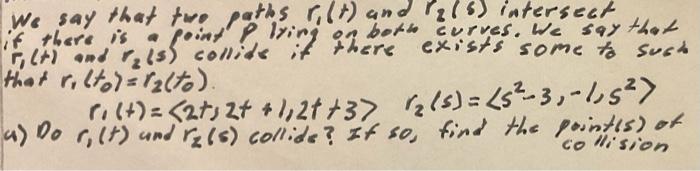 We say that two paths r₁(t) and r₂(s) intersect
if there is a point P lying on both curves. We say that
r₁(t) and r₂(s) collide if there exists some to such
that r₁(to)=r₂(to).
r₁(t)=<2t,2t+1,2t+3> r₂(s)=<s²-3,-1,s²>
a) Do r₁(t) and r₂(s) collide? If so, find the point(s) of
collision